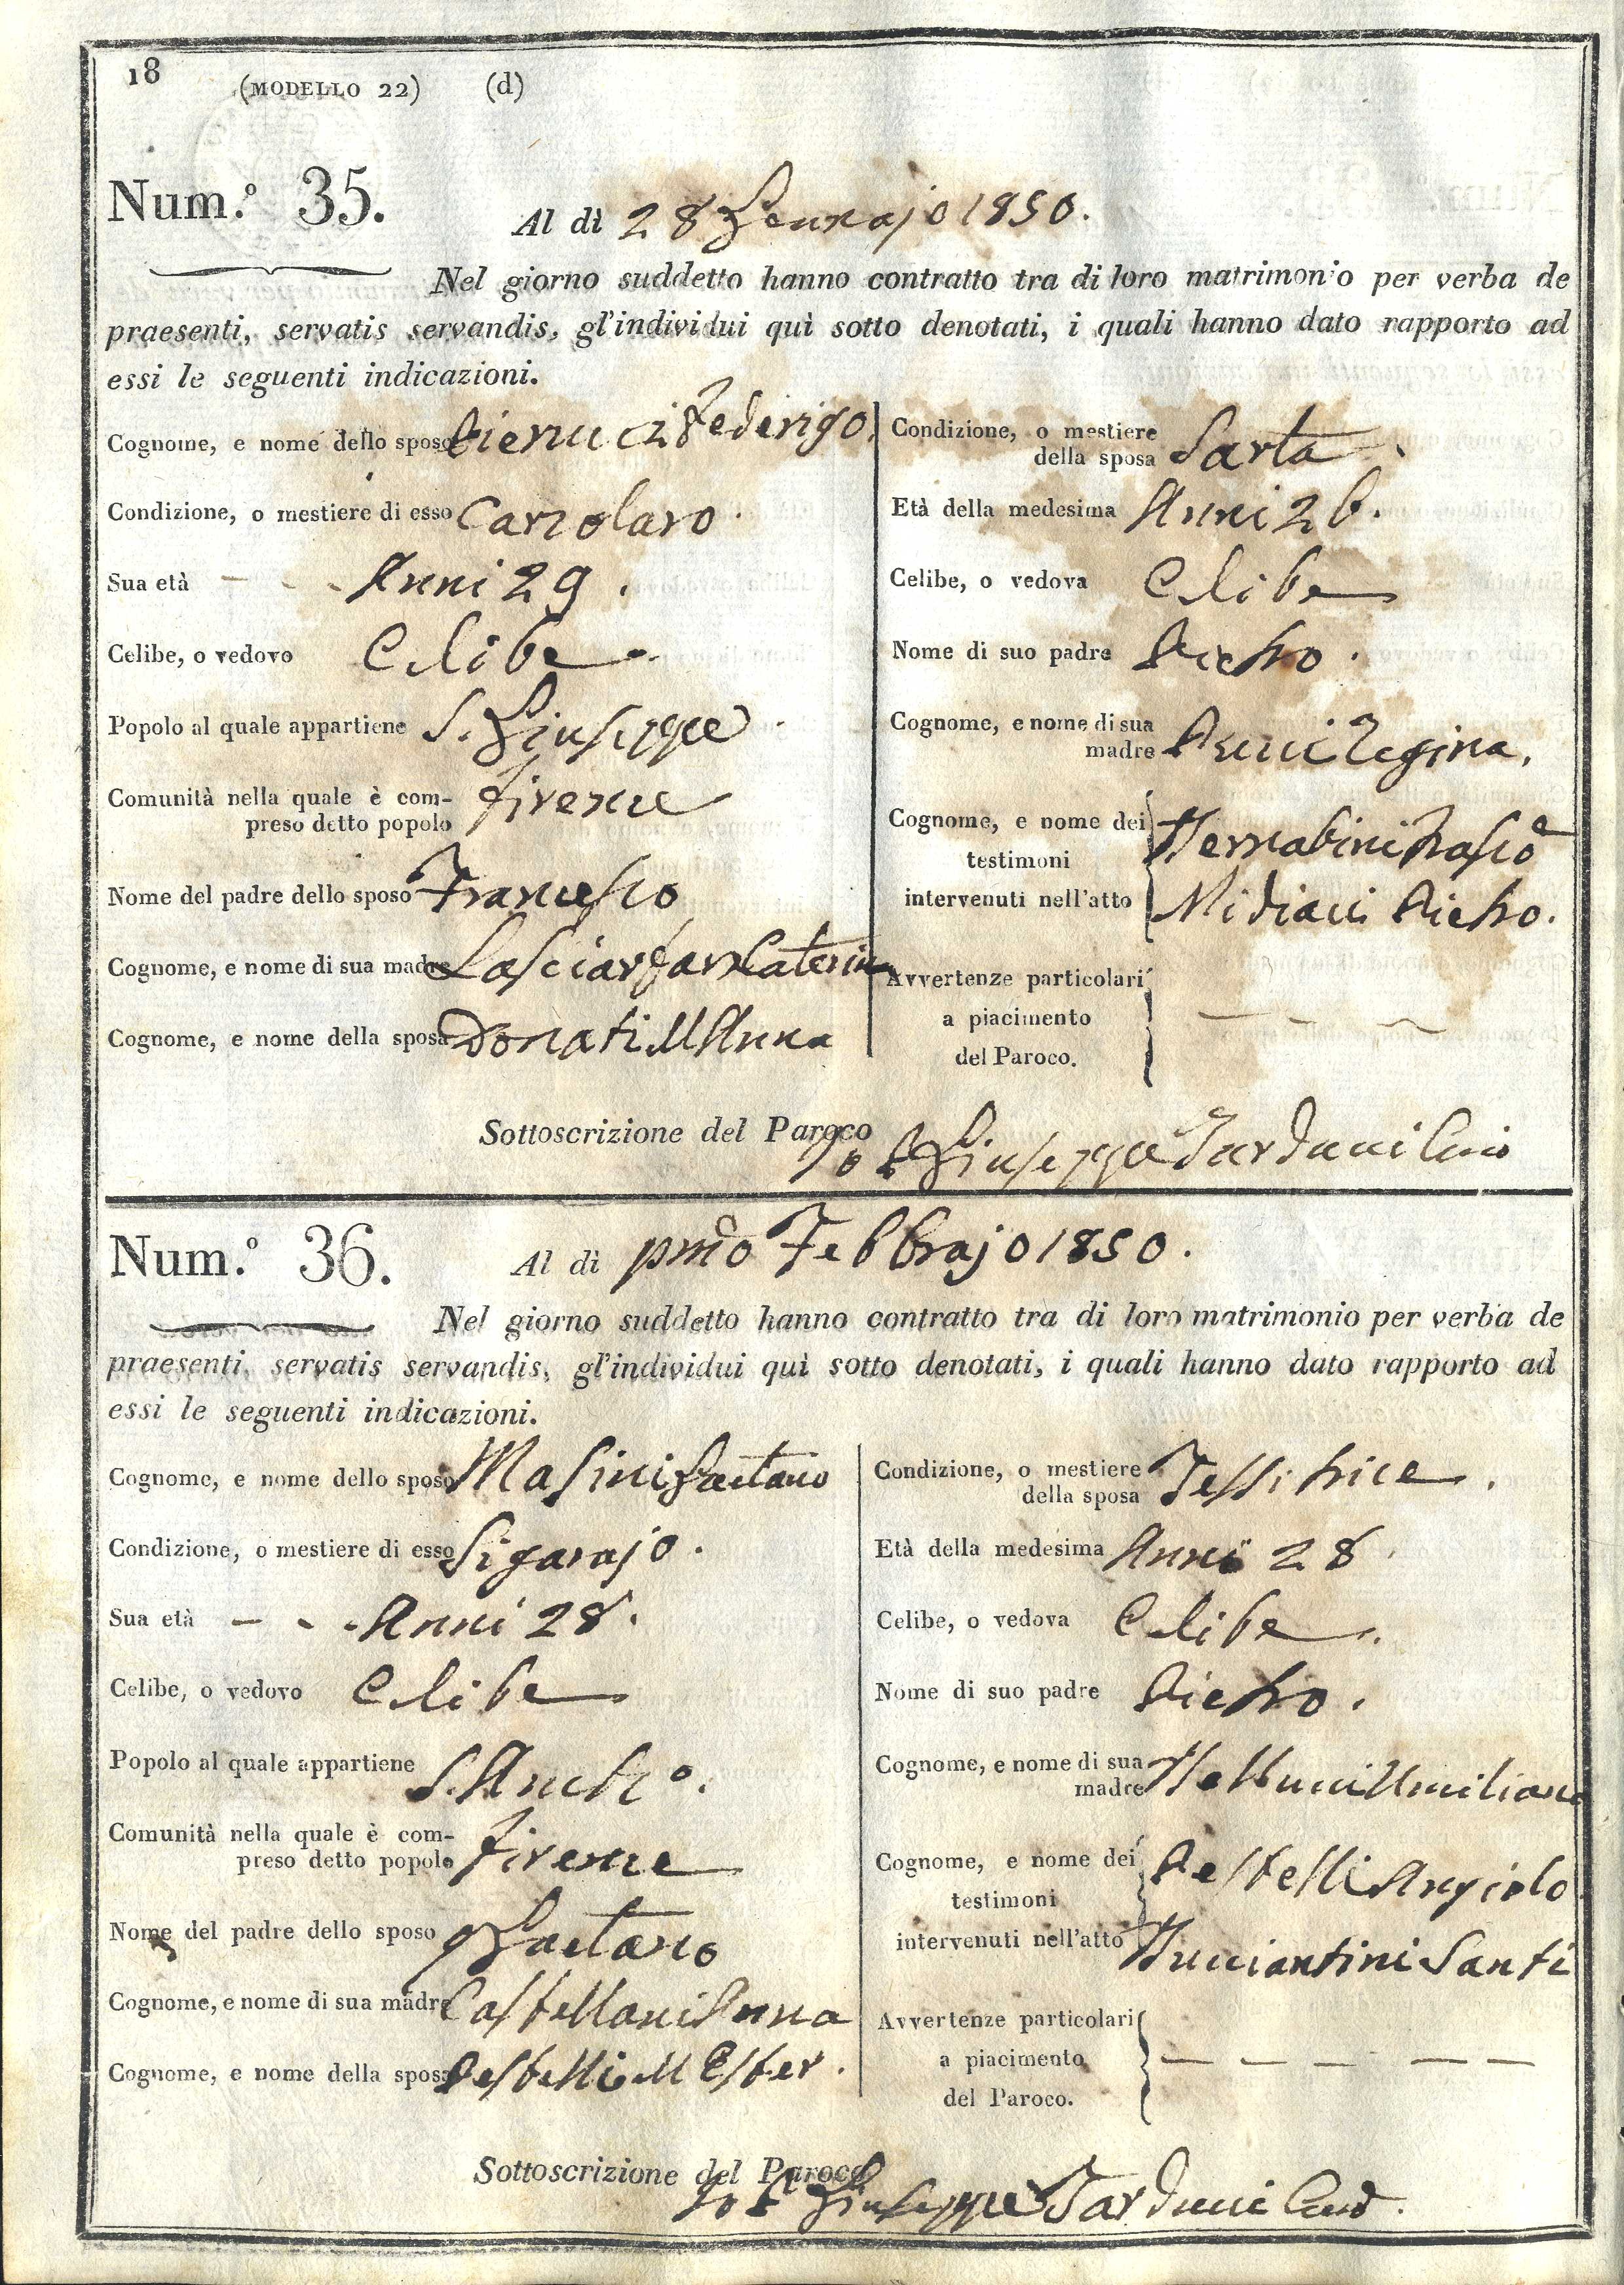 18
(MODELLO 22) (d)
Num.º 35.
Al dì 28 Gennajo 1850.
Nel giorno suddetto hanno contratto tra di loro matrimonio per verba de
praesenti, servatis servandis, gl'individui quì sotto denotati, i quali hanno dato rapporto ad
essi le seguenti indicazioni.
Cognome, e nome dello sposo Pierucci Federigo.
Condizione, o mestiere di esso Calzolaro.
Sua età - - - Anni 29.
Celibe, o vedovo Celibe
Popolo al quale appartiene S. Giuseppe
Comunità nella quale è com-
preso detto popolo Firenze
Nome del padre dello sposo Francesco
Cognome, e nome di sua madre Caterina
Cognome, e nome della sposa Donati M Anna
Condizione, o mestiere
della sposa Sarta
Età della medesima Anni 26.
Celibe, o vedova Celibe
Nome di suo padre Pietro.
Cognome, e nome di sua
madre Regina.
Cognome, e nome dei
testimoni
intervenuti nell'atto
Pietro.
Avvertenze particolari
a piacimento — - ~
del Paroco.
Sottoscrizione del Paroco Io P. Giuseppe Tarducci
Num.º 36.
Al dì pmo Febbrajo 1850.
Nel giorno suddetto hanno contratto tra di loro matrimonio per verba de
praesenti, servatis servandis, gl'individui quì sotto denotati, i quali hanno dato rapporto ad
essi le seguenti indicazioni.
Cognome, e nome dello sposo Masini Gaetano
Condizione, o mestiere di esso Sigarajo.
Sua età - - - Anni 28.
Celibe, o vedovo Celibe
Popolo al quale appartiene
Comunità nella quale è com-
preso detto popolo Firenze
Nome del padre dello sposo Gaetano
Cognome, e nome di sua madre Castellani Anna
Cognome, e nome della sposa Pestelli M Ester.
Condizione, o mestiere
della sposa Tessitrice.
Età della medesima Anni 28
Celibe, o vedova Celibe.
Nome di suo padre Pietro.
Cognome, e nome di sua
madre Umiliana
Cognome, e nome dei Pestelli Angiolo
testimoni
intervenuti nell'atto Bucciantini Santi
Avvertenze particolari
a piacimento — — — — —
del Paroco.
Sottoscrizione del Paroco Io P. Giuseppe Tarducci